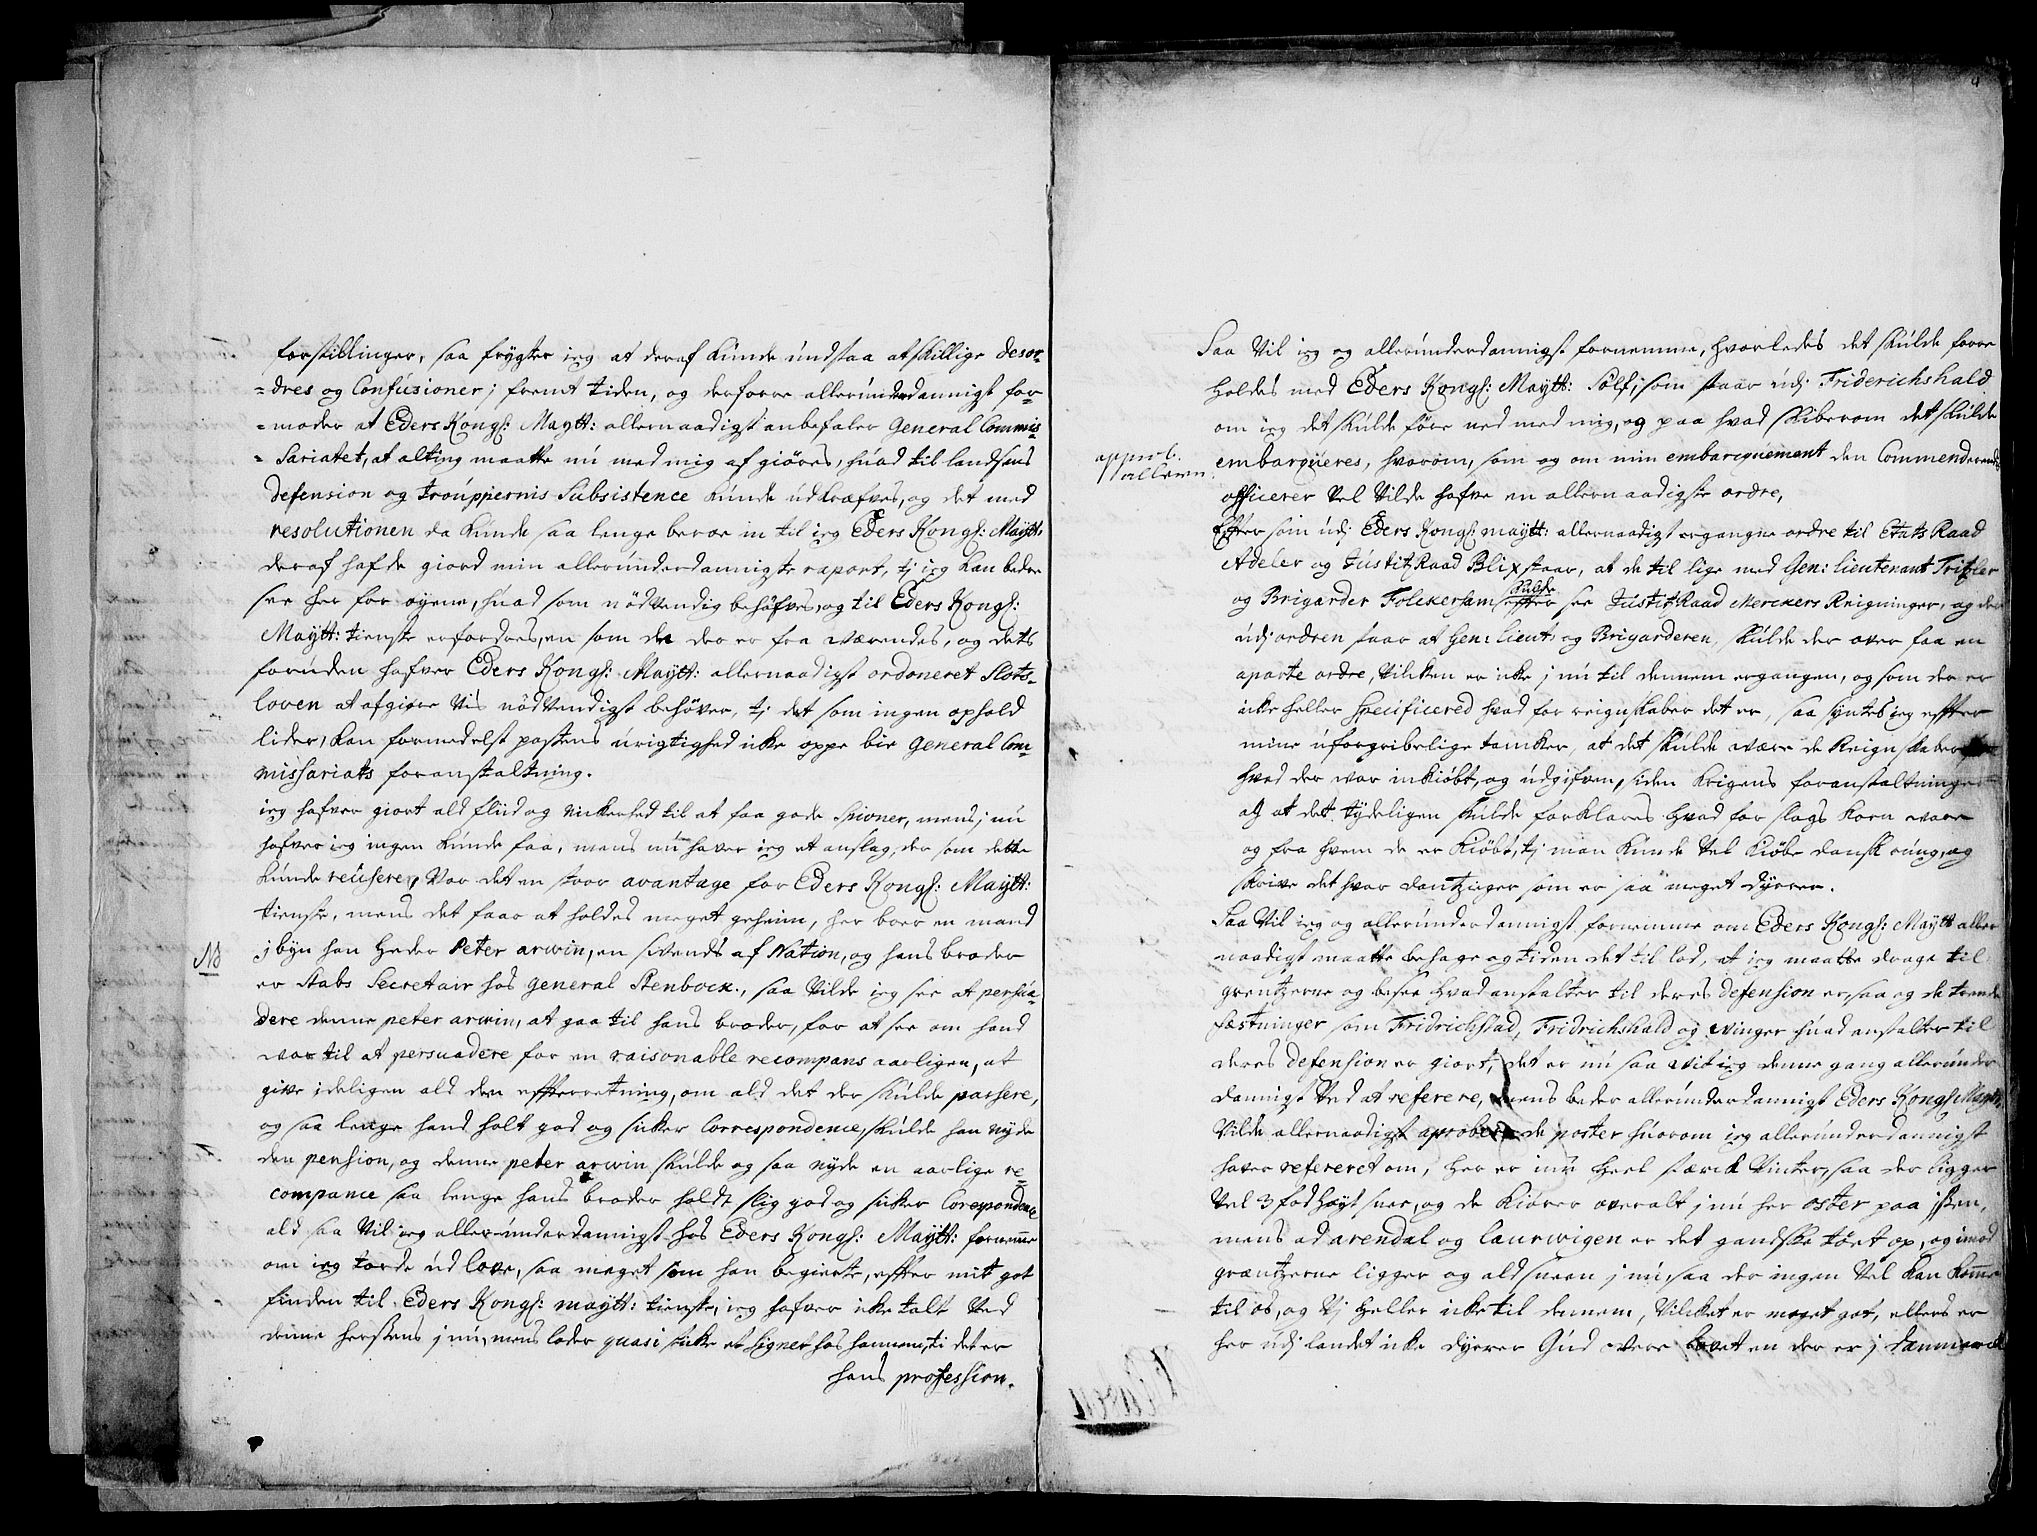 forstillinger, saa frygter ieg at deraf kunde undstaa atskillige desor-
-dres og Confusioner i fremt tiden, og derforre allerunderdannigst for-
-moder at Eders Kongl: Maytt: allernaadigst anbefaler General Commis-
-sariatet, at alting maatte nu med mig af giøres, huad til landsens
defension og trouppernis Subsistence kunde udkræfves, og det med
resolutionen da kunde saa lenge beroe in til ieg Eders Kongl: Maytt:
deraf hafde giord min allerunderdannigste raport, tj ieg kan bedre
see her for øyene, huad som nödvendig behöfves, og til Eders Kongl:
Maytt: tieniste erfordres, en som de der er fra værendes, og dets
foruden hafver Eders Kongl: Maytt: allernaadigst ordoneret Slots-
loven at afgiøre vis nödvendigst behöver, tj det som ingen ophold
lider, kan formedelst postens urigtighed icke oppe bie General Com-
missariats foranstaltning.
ieg hafver giort ald fliid og vickerhed til at faa gode Spioner, mens j nu
hafver ieg ingen kunde faa, mens nu haver ieg et anslag, der som dette
kunde reusere, var det en stoor avantage for Eders Kongl: Maytt:
tieniste, mens det faar at holdes meget geheim, her boer en mand
NB
j byn han heder Peter arwin, en svensk af Nation, og hans broder
er Stabs Secretair hos general Stenbock, saa vilde ieg see at persua
dere denne peter arwin, at gaa til hans broder, for at see om hand
var til at persuadere for en raisonable recompans aarligen, at
give ideligen ald den efterretning, om ald det der skulde passere,
og saa lenge hand holt god og sicker Correspondence, skulde han nyde
den pension, og denne peter arwin skulde og saa nyde en aarlige re-
compance saa lenge hans broder holdt slig god og sicker Corespondence
ald saa vil ieg allerunderdannigst hos Eders Kongl: Maytt: fornemme
om ieg torde ud love, saa meget som han begierte, effter mit got
finden til Eders Kongl: maytt: tieniste, ieg hafver icke talt ved
denne herssens j nu, mens lader quasi stikke et Signet hos hannem, ti det er
hans profession.
Saa vil ieg og allerunderdannigst fornemme, hvorledes det skulde forre
holdes med Eders Kongl: Maytt: Sølf, som staar udj Friderichshald
om ieg det skulde före ned med mig, og paa hvad skiberom det skulde
approb.
allern.
embarqueres, hvorom, som og om min embarquement den Commenderende
officerer vel vilde hafve en allernaadigste ordre,
Effter som udj Eders Kongl: maytt: allernaadigst ergangne ordre til Etats Raad
Adeler og Justitz Raad Blix staar, at de til lige med Gen: lieutenant Tritzler
og Brigarder Folckersam skulde effter see Justitz Raad Merckers Reigninger, og der
udj ordren staar at Gen: lieut: og Brigarderen, skulde der over faa en
aparte ordre, vilcken er icke j nu til dennem ergangen, og som der er
icke heller Specificered hvad for reignskaber det er, saa syntes ieg effter
mine uforgribelige tancker, at det skulde være de Reignskaber
hvad der var inkiöbt, og udgifven, siden Krigens foranstaltninger
og at det tydeligen skulde forklares hvad for slags korn vare
og fra hvem de er kiöbt, tj man kunde vel kiöbe dansk rung, og
skrive det hvor dantziger som er saa meget dyrer.
Saa vil ieg og allerunderdannigst fornemme om Eders Kongl: Maytt aller
naadigst maatte behage og tiden det til lod, at ieg maatte drage til
grentzerne og besee hvad anstalter til deres defension er, saa og de trende
fæstninger som Fridrichstad, Fridrichshald og Winger huad anstalter til
deres defension er giort, det er nu saa vit ieg denne gang allerunder
dannigst ved at referere, mens beder allerunderdannigst Eders Kongl: Maytt:
vilde allernaadigst aprobere de poster huorom ieg allerunderdannigst
haver refereret om, her er inu heel stærck vinter, saa der ligger
vel 3 fod høyt snee, og de kiörer overalt j nu her oster paa jsen,
mens ad arendal og laurwigen er det gandske tört op, og imod
græntzerne ligger og ald sneen j nu, saa der ingen vel kan komme
til os, og vj heller icke til dennem, vilcket er meget got, ellers er
her udj landet icke dyrer Gud være lovet en der er j Danmarck